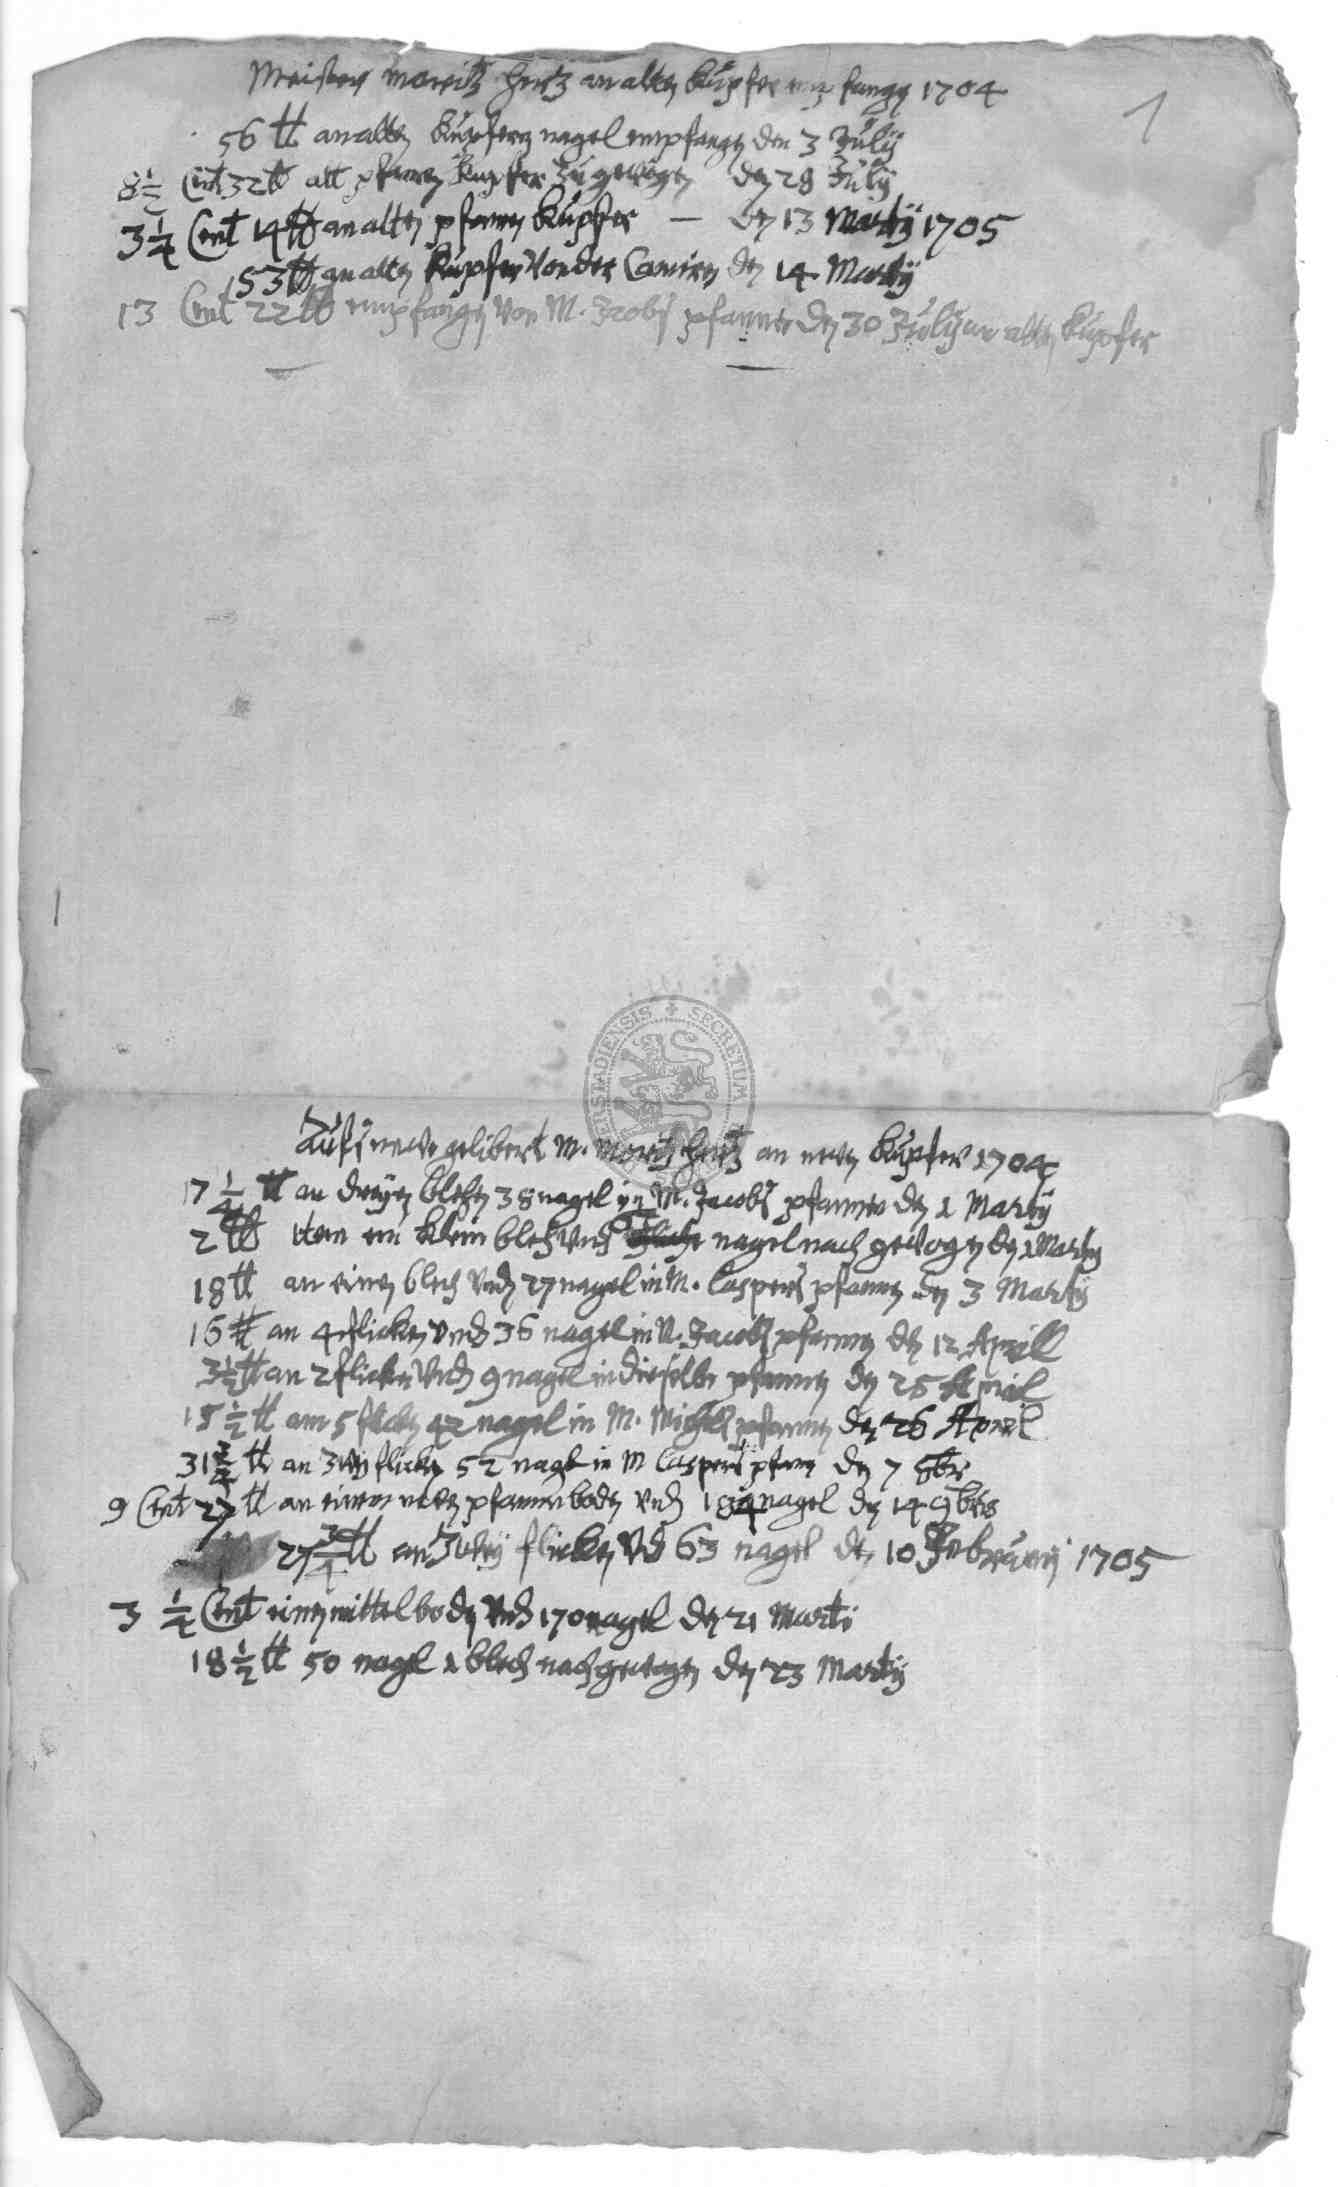 Meister Moritz hertz an alten Kupfer empfangen 1704
1
56 tt an alten Kupfern nagel empfangen den 3 July
8 1/2 Cent 32 tt alt pfannen Kupfer zu gewogen den 28 July
3 1/4 Cent 14 tt an alten pfannen Kupfer — den 13 Martij 1705
53 tt an alten Kupfer Von der den 14 Martij
13 Cent 22 tt empfangen von M. Jacobs pfannen den 30 July an alten Kupfer
Aufs newe gelibert M. Moritz hertz an newen Kupfer 1704
17 1/4 tt an dreyen blehen 38 nagel in M. Jacobs pfannen den 1 Martij
2 tt item ein klein bleh Vnd nagel nach gewogen den 1 Martij
18 tt an einen blech Vnd 27 nagel in M. Caspers pfannen den 3 Martij
16 tt an 4 flicken Vnd 36 nagel in M. Jacobs pfannen den 12 Aprill
3 1/2 tt an 2 flicken Vnd 9 nagel in dieselbe pfannen den 25 Apriel
18 1/2 tt ann 5 flicken 42 nagel in M. Michels pfannen den 26 April
31 3/4 tt an zwey flicken 52 nagel in M Caspers pfann den 7 8br
9 Cent 27 tt an einen newen pfannen boden Vnd 184 nagel den 14 9bris
27 3/4 tt an zwey flicken Vnd 63 nagel den 10 Februarij 1705
3 1/4 Cent einen mittelboden Vnd 170 nagel den 21 Marti
18 1/2 tt 50 nagel 1 blech nach gewogen den 23 Martij